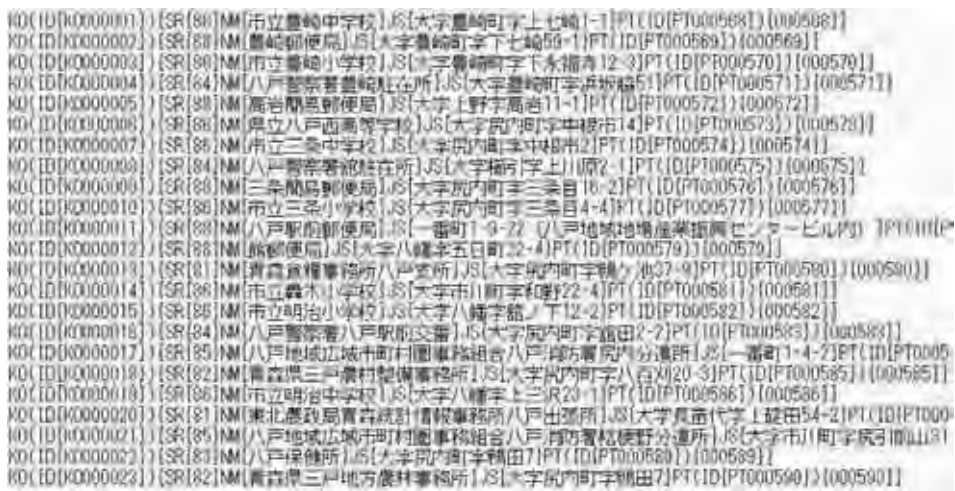 KO(ID[KO000001]){SR[86]NM[市立豊崎中学校]JS[大字豊崎町字上七崎1-1]PT(ID[PT000568]){000568}}
KO(ID[KO000002]){SR[88]NM[豊崎郵便局]JS[大字豊崎町字下七崎59-1]PT(ID[PT000569]){000569}}
KO(ID[KO000003]){SR[86]NM[市立豊崎小学校]JS[大字豊崎町字下永福寺12-3]PT(ID[PT000570]){000570}}
KO(ID[KO000004]){SR[84]NM[八戸警察署豊崎駐在所]JS[大字豊崎町字浜坂脇51]PT(ID[PT000571]){000571}}
KO(ID[KO000005]){SR[88]NM[高岩簡易郵便局]JS[大字上野字高岩11-1]PT(ID[PT000572]){000572}}
KO(ID[KO000006]){SR[86]NM[県立八戸西高等学校]JS[大字尻内町字中根市14]PT(ID[PT000573]){000573}}
KO(ID[KO000007]){SR[86]NM[市立三条中学校]JS[大字尻内町字中根市2]PT(ID[PT000574]){000574}}
KO(ID[KO000008]){SR[84]NM[八戸警察署館駐在所]JS[大字櫛引字上川原2-1]PT(ID[PT000575]){000575}}
KO(ID[KO000009]){SR[88]NM[三条簡易郵便局]JS[大字尻内町字三条目16-2]PT(ID[PT000576]){000576}}
KO(ID[KO000010]){SR[86]NM[市立三条小学校]JS[大字尻内町字三条目4-4]PT(ID[PT000577]){000577}}
KO(ID[KO000011]){SR[88]NM[八戸駅前郵便局]JS[一番町1-9-22 (八戸地域地場産業振興センタービル内) ]PT(ID[P
KO(ID[KO000012]){SR[88]NM[館郵便局]JS[大字八幡字五日町22-4]PT(ID[PT000579]){000579}}
KO(ID[KO000013]){SR[81]NM[青森食糧事務所八戸支所]JS[大字尻内町字鴨ケ池37-9]PT(ID[PT000580]){000580}}
KO(ID[KO000014]){SR[86]NM[市立轟木小学校]JS[大字市川町字和野22-4]PT(ID[PT000581]){000581}}
KO(ID[KO000015]){SR[86]NM[市立明治小学校]JS[大字八幡字館ノ下12-2]PT(ID[PT000582]){000582}}
KO(ID[KO000016]){SR[84]NM[八戸警察署八戸駅前交番]JS[大字尻内町字館田2-2]PT(ID[PT000583]){000583}}
KO(ID[KO000017]){SR[85]NM[八戸地域広域市町村圏事務組合八戸消防署尻内分遣所]JS[一番町1-4-2]PT(ID[PT0005
KO(ID[KO000018]){SR[82]NM[青森県三戸農村整備事務所]JS[大字尻内町字八百刈20-3]PT(ID[PT000585]){000585}}
KO(ID[KO000019]){SR[86]NM[市立明治中学校]JS[大字八幡字上三沢23-1]PT(ID[PT000586]){000586}}
KO(ID[KO000020]){SR[81]NM[東北農政局青森統計情報事務所八戸出張所]JS[大字長苗代字上碇田54-2]PT(ID[PT000
KO(ID[KO000021]){SR[85]NM[八戸地域広域市町村圏事務組合八戸消防署桔梗野分遣所]JS[大字市川町字尻引前山31
KO(ID[KO000022]){SR[83]NM[八戸保健所]JS[大字尻内町字鴨田7]PT(ID[PT000589]){000589}}
KO(ID[KO000023]){SR[82]NM[青森県三戸地方農林事務所]JS[大字尻内町字鴨田7]PT(ID[PT000590]){000590}}